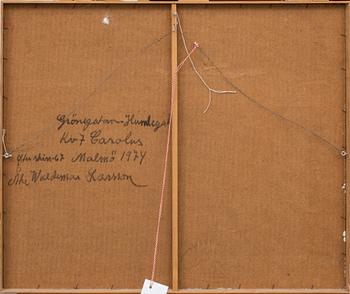 Gröngatan-Humlega
Kv 7 Carolus
Malmö 1974
Åke Waldemar Larsson